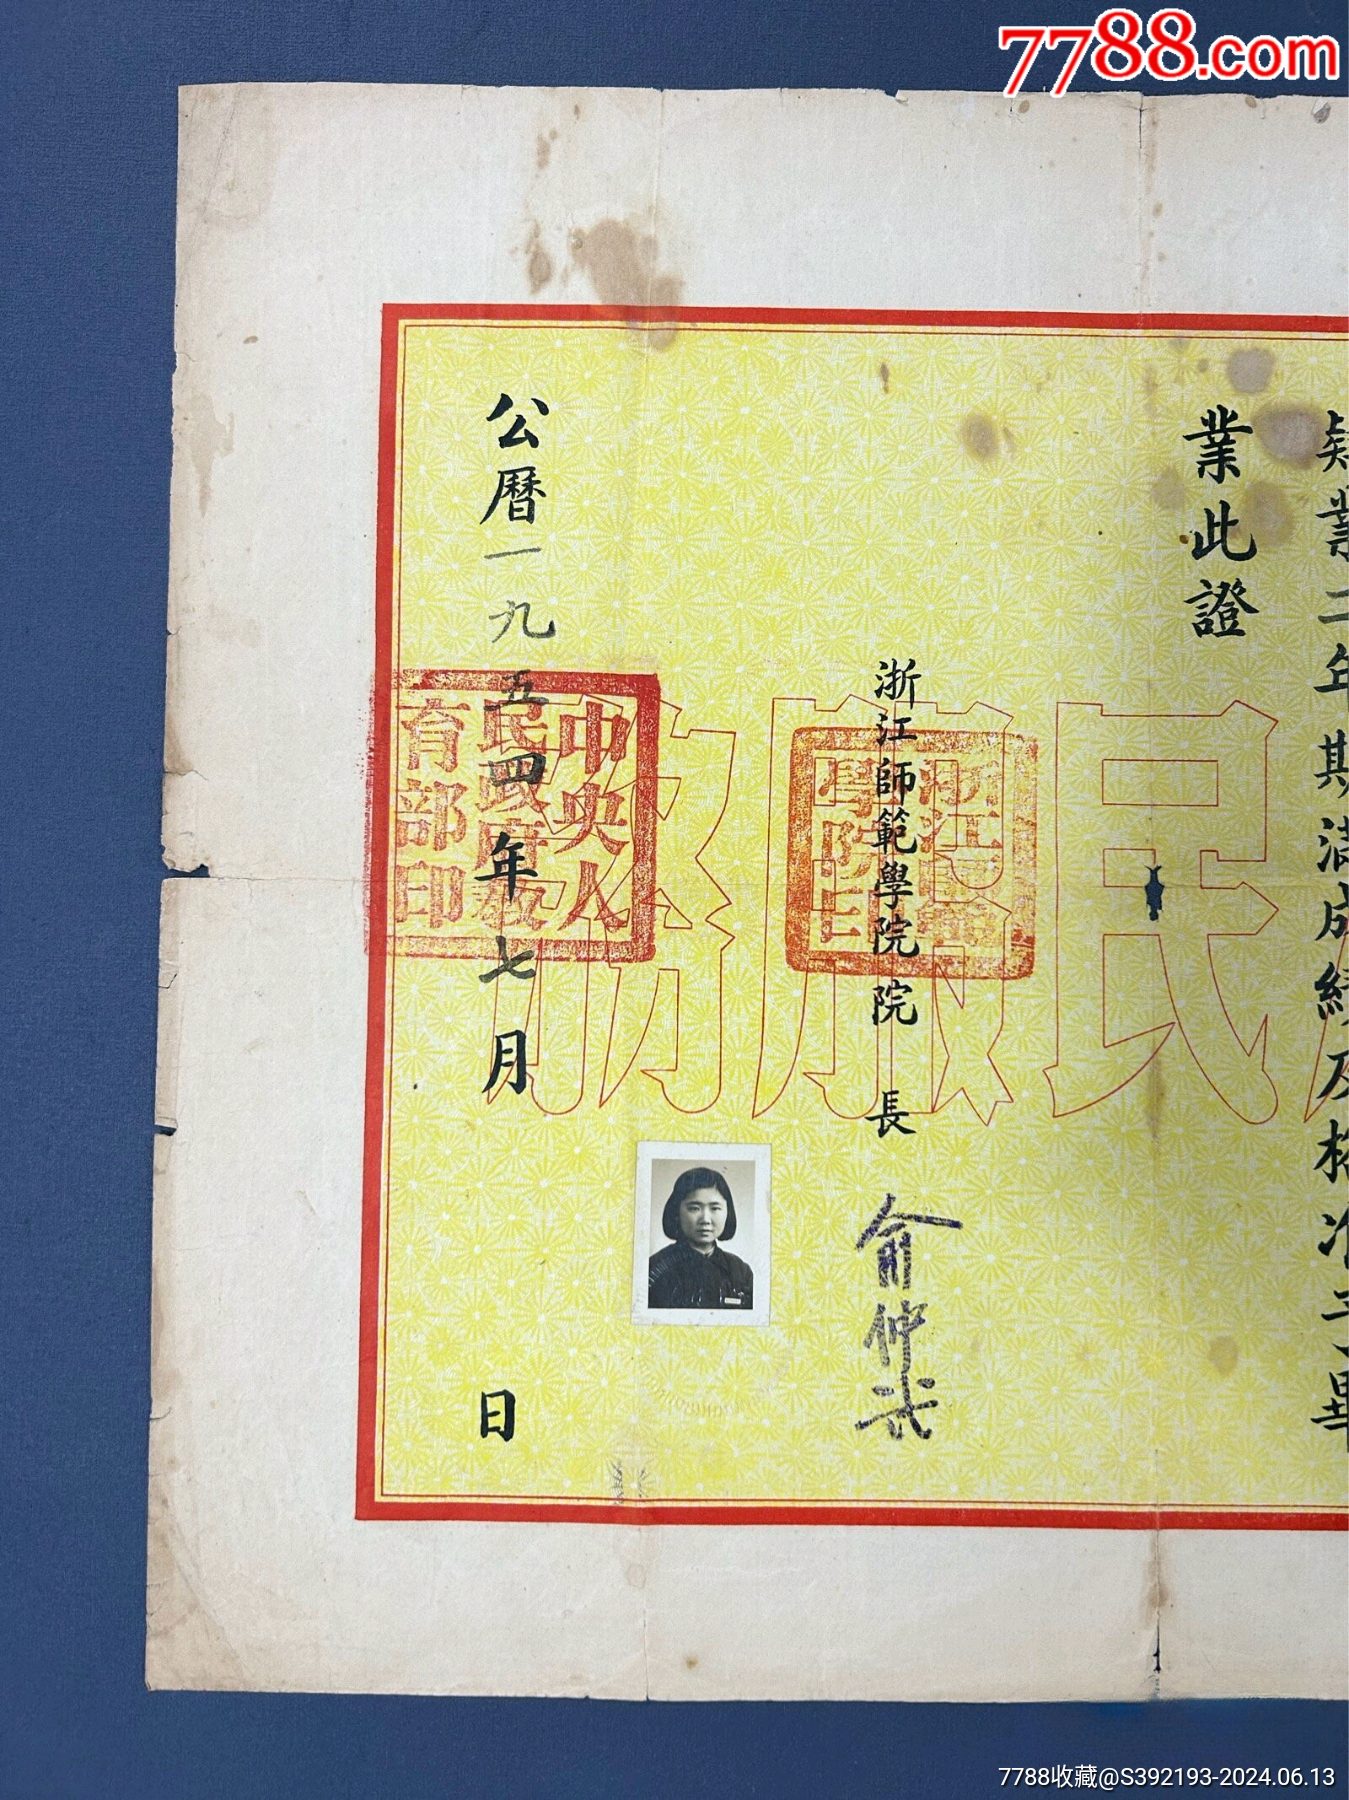 7788.com
肄業二年期滿成績及格准予畢
業此證
浙江師範學院院長 俞仲武
浙江師範
學院印
公曆一九五四年七月 日
中央人
民政府教
育部印
民服務
7788收藏@S392193-2024.06.13